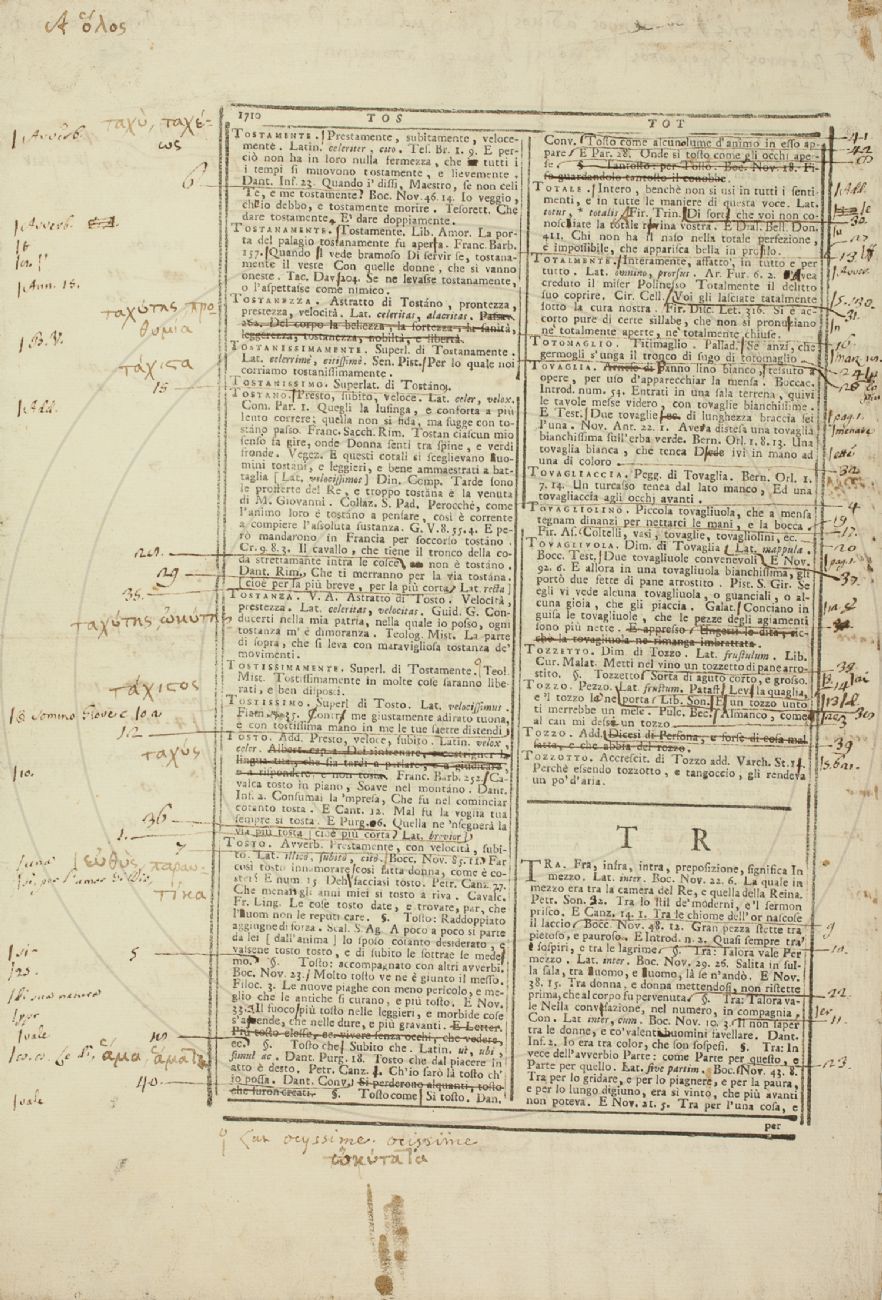 Α ὅλος
1710
TOS
TOT
TOSTAMENTE. Prestamente, subitamente, veloce-
mente. Latin. celeriter, cito. Tes. Br. 1. 9. E per-
ciò non ha in loro nulla fermezza, che tutti i
i tempi si muovono tostamente, e lievemente.
Dant. Inf. 23. Quando i' dissi, Maestro, se non celi
Te, e me tostamente? Boc. Nov. 46. 14. Io veggio,
ch'io debbo, e tostamente morire. Tesorett. Che
dare tostamente, E' dare doppiamente.
TOSTANAMENTE. Tostamente. Lib. Amor. La por-
ta del palagio tostanamente fu aperta. Franc. Barb.
157. Quando ti vede bramoso Di servir se, tostana-
mente il veste Con quelle donne, che si vanno
oneste. Tac. Dav. 204. Se ne levasse tostanamente,
o l'aspettasse come nimico.
TOSTANEZZA. Astratto di Tostáno, prontezza,
prestezza, velocità. Lat. celeritas, alacritas. Passav.
262. Del corpo la bellezza, la fortezza, la sanità,
leggerezza, tostanezza, nobiltà, e libertà.
TOSTANISSIMAMENTE. Superl. di Tostanamente.
Lat. celerrimè, citissimè. Sen. Pist. Per lo quale noi
corriamo tostanissimamente.
TOSTANISSIMO. Superlat. di Tostáno.
TOSTANO. Presto, subito, veloce. Lat. celer, velox.
Com. Par. 1. Quegli la lusinga, e conforta a più
lento correre; quella non si fida, ma fugge con to-
stáno passo. Franc. Sacch. Rim. Tostan ciascun mio
senso fa gire, onde Donna senti tra spine, e verdi
fronde. Vegez. E questi cotali si sceglievano uo-
mini tostani, e leggieri, e bene ammaestrati a bat-
taglia [Lat. velocissimos] Din. Comp. Tarde sono
le profferte del Re, e troppo tostána è la venuta
di M. Giovanni. Collaz. S. Pad. Perocchè, come
l'animo loro è tostáno a pensare, così è corrente
a compiere l'assoluta sustanza. G. V. 8. 55. 4. E pe-
rò mandarono in Francia per soccorso tostáno.
Cr. 9. 8. 3. Il cavallo, che tiene il tronco della co-
da strettamante intra le cosce, non è tostáno.
Dant. Rim. Che ti merranno per la via tostána.
[cioè per la più breve, per la più corta. Lat. recta]
TOSTANZA. V. A. Astratto di Tosto. Velocità,
prestezza. Lat. celeritas, velocitas. Guid. G. Con-
ducersi nella mia patria, nella quale io posso, ogni
tostanza m' è dimoranza. Teolog. Mist. La parte
di sopra, che si leva con maravigliosa tostanza de'
movimenti.
TOSTISSIMAMENTE. Superl. di Tostamente. Teol.
Mist. Tostissimamente in molte cose saranno libe-
rati, e ben disposti.
TOSTISSIMO. Superl di Tosto. Lat. velocissimus.
Fiam. 4. 35. Contr. me giustamente adirato tuona,
e con tostissima mano in me le tue saette distendi
TOSTO. Add. Presto, veloce, subito. Latin. velox,
celer. Albert. cap. 2. Dei rifrenare, e costrignere la
lingua tua, che sia tardi a parlare, e a giudicare,
e a rispondere, e non tosta. Franc. Barb. 252. Ca-
valca tosto in piano, Soave nel montáno. Dant.
Inf. 2. Consumai la 'mpresa, Che fu nel cominciar
cotanto tosta. E Cant. 12. Mal fu la voglia tua
sempre sì tosta. E Purg. 6. Quella ne 'nsegnerà la
via più tosta [cioè più corta? Lat. brevior]
TOSTO. Avverb. Prestamente, con velocità, subi-
to. Lat. illicò, subitò, citò. Bocc. Nov. 85. 11. Far
così tosto innamorare così fatta donna, come è co-
stei? E num 15 Deh, facciasi tosto. Petr. Canz. 27.
Che menan gli anni miei sì tosto a riva. Cavalc.
Fr. Ling. Le cose tosto date, e trovate, par, che
l'uom non le reputi care. §. Tosto: Raddoppiato
aggiugne di forza. Scal. S. Ag. A poco a poco si parte
da lei [dall'anima] lo sposo cotanto desiderato, e
vassene tosto tosto, e di subito le sottrae se mede-
mo. §. Tosto: accompagnato con altri avverbi.
Boc. Nov. 23. Molto tosto ve ne è giunto il messo.
Filoc. 3. Le nuove piaghe con meno pericolo, e me-
glio che le antiche si curano, e più tosto. E Nov.
33. Il fuoco più tosto nelle leggieri, e morbide cose
s'accende, che nelle dure, e più gravanti. E Letter.
Più tosto elesse, se vivere senza occhi, che vedere,
ec. §. Tosto che: Subito che. Latin. ut, ubi,
simul ac. Dant. Purg. 18. Tosto che dal piacere in
atto è desto. Petr. Canz. 4. Ch'io sarò là tosto ch'
io possa. Dant. Conv. Si perderono alquanti, tosto
che furon creati. §. Tosto come: Sì tosto. Dan.
Conv. Tosto come alcuno lume d'animo in esso ap-
pare. E Par. 28. Onde sì tosto come gli occhi aper-
se. § Tantosto: per Tosto. Boc. Nov. 18. Fi-
so guardandolo tantosto il conobbe.
TOTALE. Intero, benchè non si usi in tutti i senti-
menti, e in tutte le maniere di questa voce. Lat.
totus, * totalis. Fir. Trin. Di sorte che voi non co-
nosciate la totale rovina vostra. E Dial. Bell. Don.
411. Chi non ha il naso nella totale perfezione,
è impossibile, che apparisca bella in profilo.
TOTALMENTE. Interamente, affatto, in tutto e per
tutto. Lat. omnino, prorsus. Ar. Fur. 6. 2. Avea
creduto il misser Polinesso Totalmente il delitto
suo coprire. Cir. Cell. Voi gli lasciate tatalmente
sotto la cura nostra. Fir. Disc. Let. 316. Si è ac-
corto pure di certe sillabe, che non si pronuziano
nè totalmente aperte, nè totalmente chiuse.
TOTOMAGLIO. Titimaglio. Pallad. Se anzi, che
germogli s'unga il tronco di sugo di totomaglio
TOVAGLIA. Arnese di Panno lino bianco, tessuto a
opere, per uso d'apparecchiar la mensa. Boccac.
Introd. num. 54. Entrati in una sala terrena, quivi
le tavole messe videro, con tovaglie bianchissime.
E Test. Due tovaglie ec. di lunghezza braccia sei
l'una. Nov. Ant. 22. 1. Avea distesa una tovaglia
bianchissima sull'erba verde. Bern. Orl. 1. 8. 13. Una
tovaglia bianca, che tenea Desse ivi in mano ad
una di coloro
TOVAGLIACCIA. Pegg. di Tovaglia. Bern. Orl. 1.
7. 14. Un turcasso tenea dal lato manco, Ed una
tovagliaccia agli occhj avanti.
TOVAGLIOLINO. Piccola tovagliuola, che a mensa
tegnam dinanzi per nettarci le mani, e la bocca.
Fir. As. Coltelli, vasi, tovaglie, tovagliolini, ec.
TOVAGLIVOLA. Dim. di Tovaglia. Lat. mappula.
Bocc. Test. Due tovagliuole convenevoli. E Nov.
92. 6. E allora in una tovagliuola bianchissima, gli
portò due fette di pane arrostito. Pist. S. Gir. Se
egli vi vede alcuna tovagliuola, o guanciali, o al-
cuna gioia, che gli piaccia. Galat. Conciano in
guisa le tovagliuole, che le pezze degli agiamenti
sono più nette. E appresso. Ungersi le dita, sic-
chè la tovagliuola ne rimanga imbrattata.
TOZZETTO. Dim. di Tozzo. Lat. frustulum. Lib.
Cur. Malat. Metti nel vino un tozzetto di pane arro-
stito. §. Tozzetto: Sorta di aguto corto, e grosso.
TOZZO. Pezzo. Lat. frustum. Pataff. Lev. la quaglia,
e 'l tozzo la ne porta. Lib. Son. E un tozzo unto
ti merrebbe un mele. Pulc. Bec. Almanco, come
al can mi desse un tozzo
TOZZO. Add. Dicesi di Persona, e forse di cosa mal
fatta, e che abbia del rozzo.
TOZZOTTO. Accrescit. di Tozzo add. Varch. St. 14.
Perchè essendo tozzotto, e tangoccio, gli rendeva
un po' d'aria.
T R
TRA. Fra, infra, intra, preposizione, significa In
mezzo. Lat. inter. Boc. Nov. 22. 6. La quale in
mezzo era tra la camera del Re, e quella della Reina.
Petr. Son. 32. Tra lo stil de' moderni, e 'l sermon
prisco. E Canz. 14. 1. Tra le chiome dell'or nascose
il laccio. Bocc. Nov. 48. 12. Gran pezza stette tra
pietoso, e pauroso. E Introd. n. 2. Quasi sempre tra'
sospiri, e tra le lagrime. §. Tra: Talora vale Per
mezzo. Lat. inter. Boc. Nov. 29. 26. Salita in sul-
la sala, tra uomo, e uomo, là se n'andò. E Nov.
38. 15. Tra donna, e donna mettendosi, non ristette
prima, che al corpo fu pervenuta. §. Tra: Talora va-
le Nella conversazione, nel numero, in compagnia,
Con. Lat inter, cum. Boc. Nov. 10. 3. Il non saper
tra le donne, e co'valenti uomini favellare. Dant.
Inf. 2. Io era tra color, che son sospesi. §. Tra: In
vece dell'avverbio Parte: come Parte per questo, e
Parte per quello. Lat. sive partim. Boc. Nov. 43. 8.
Tra per lo gridare, e per lo piagnere, e per la paura,
e per lo lungo digiuno, era sì vinto, che più avanti
non poteva. E Nov. 21. 5. Tra per l'una cosa, e
per
Avverb.
ταχὺ, ταχέ-
ως
6
Avverb.
ταχύτης προ-
θυμία
τάχιστα
15
Add.
29
35
ταχύτης ὠκύτης
τάχιστος
12
ταχύς
10.
36
1.
εὐθὺς, παραυ-
τίκα
5
vale
ἅμα, ἅματε
40
vale
41
42
Add.
32
31
20
39
39
9
10.
22
11
23
Lat ocyssime. ocissime
ὠκύτατα